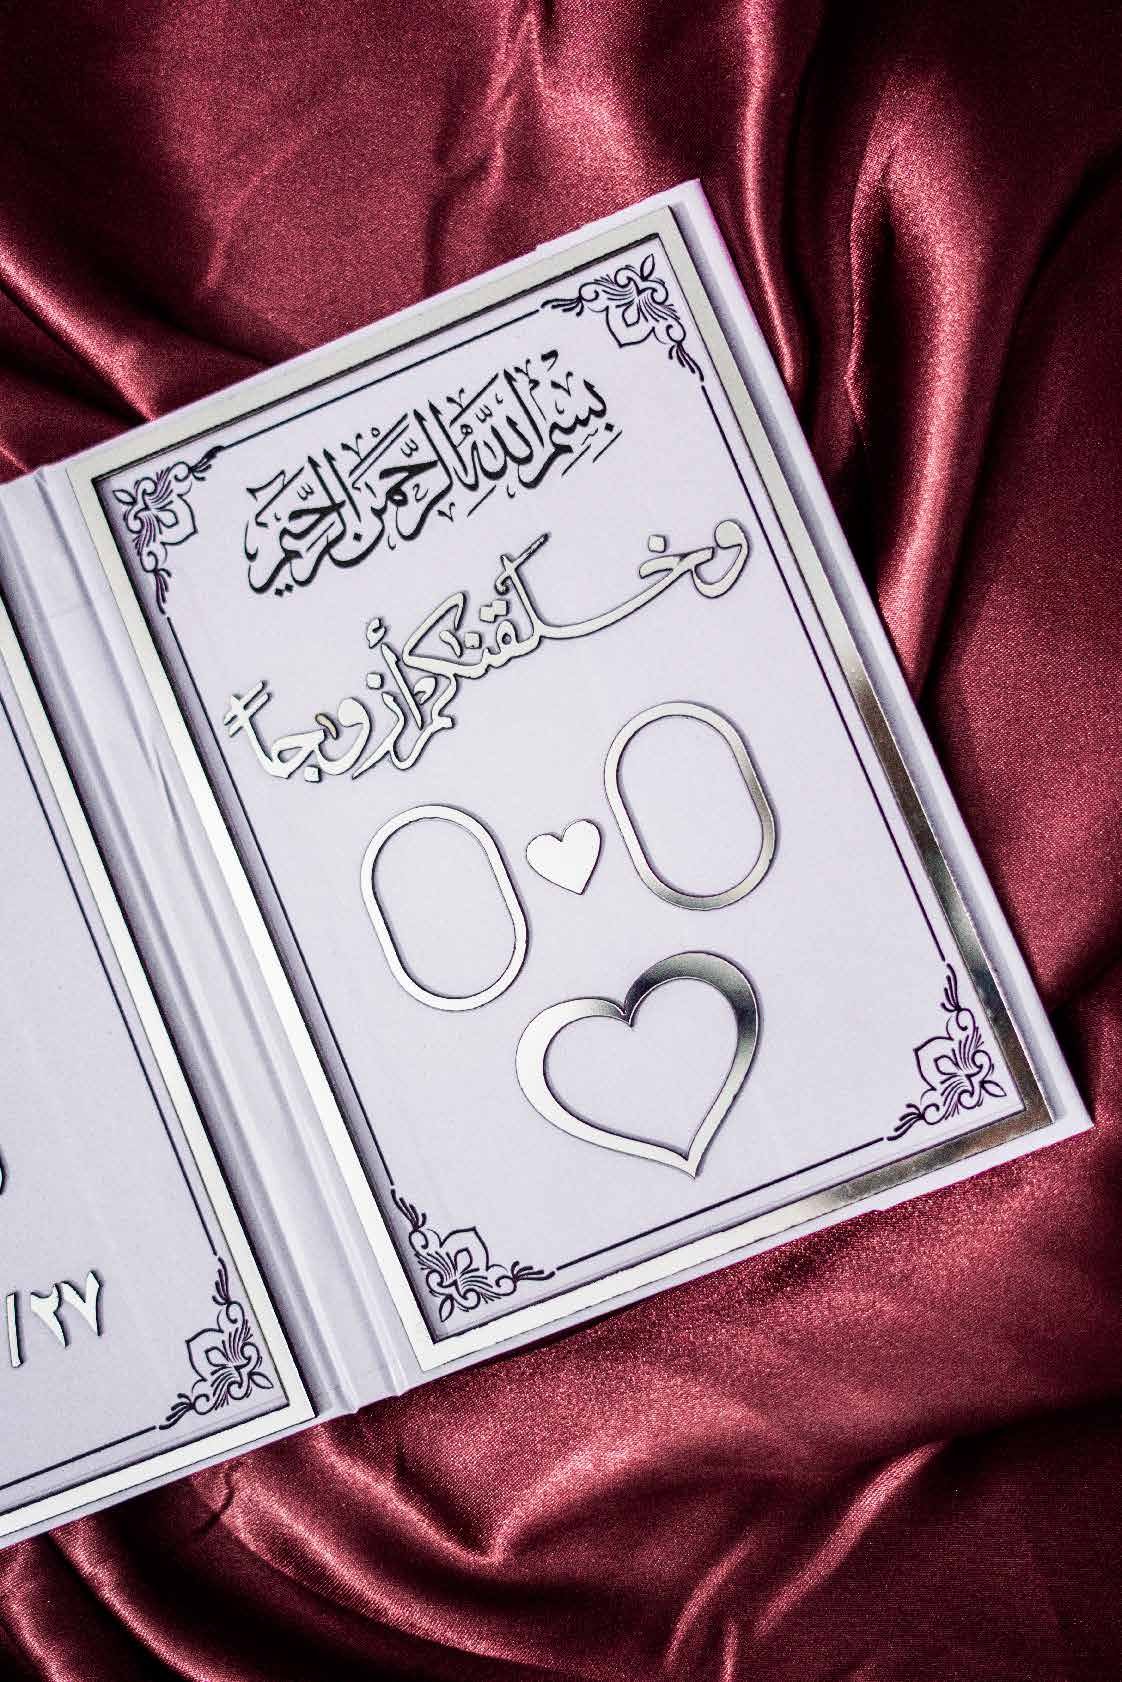 بِسْمِ اللَّهِ الرَّحْمَنِ الرَّحِيمِ
وخلقنكم أزوجاً
/٢٧